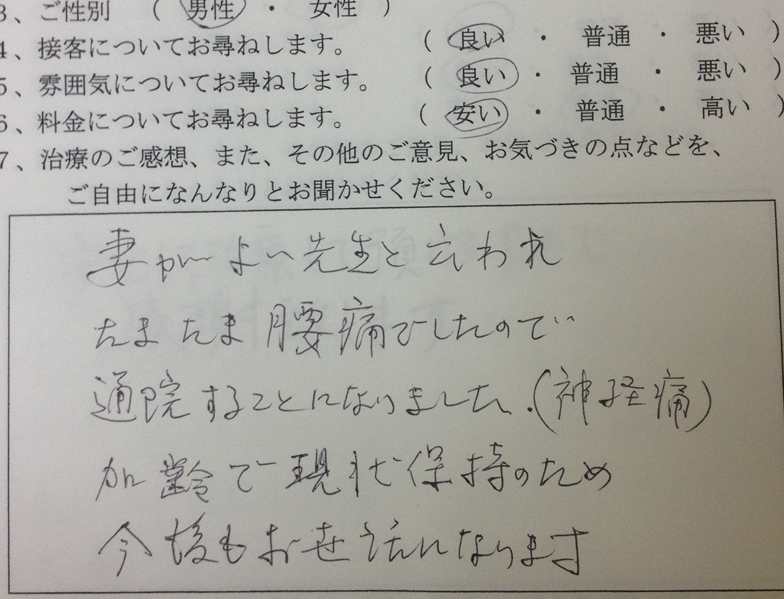 3、ご性別 ( 男性 ・ 女性 )
4、接客についてお尋ねします。 ( 良い ・ 普通 ・ 悪い )
5、雰囲気についてお尋ねします。 ( 良い ・ 普通 ・ 悪い )
6、料金についてお尋ねします。 ( 安い ・ 普通 ・ 高い )
7、治療のご感想、また、その他のご意見、お気づきの点などを、
ご自由になんなりとお聞かせください。
妻がよい先生と云われ
たまたま腰痛でしたので
通院することになりました.(神経痛)
加齢で現状保持のため
今後もお世話になります